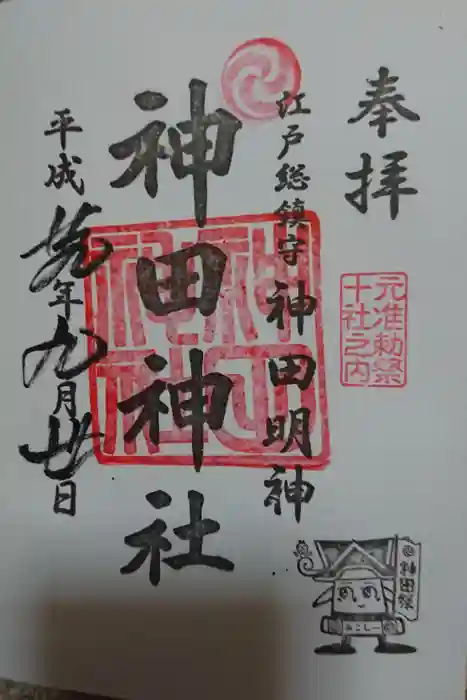 奉拝
元准勅祭
十社之内
江戸総鎮守
神田明神
神田神社
平成廿九年九月廿日
神田祭
みこしー